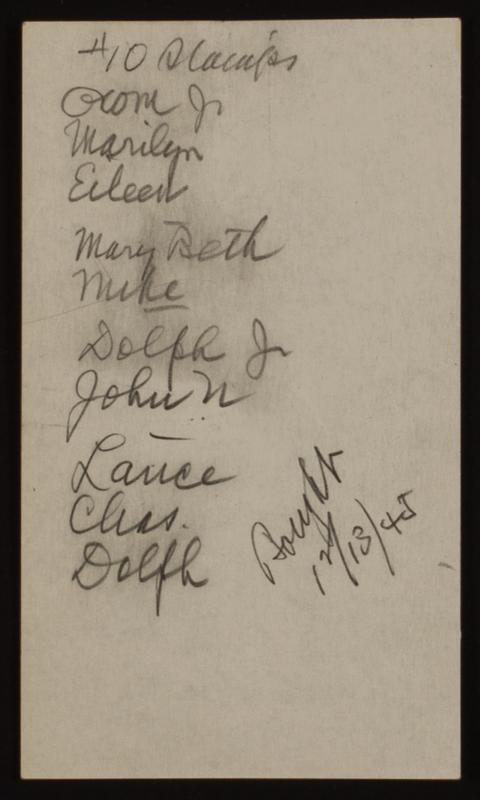 #10 Stamps
Orom Jr
Marilyn
Eileen
Mary Beth
Mike
Dolph Jr
John N
Lance
Chas.
Dolph
Bought
12/13/45